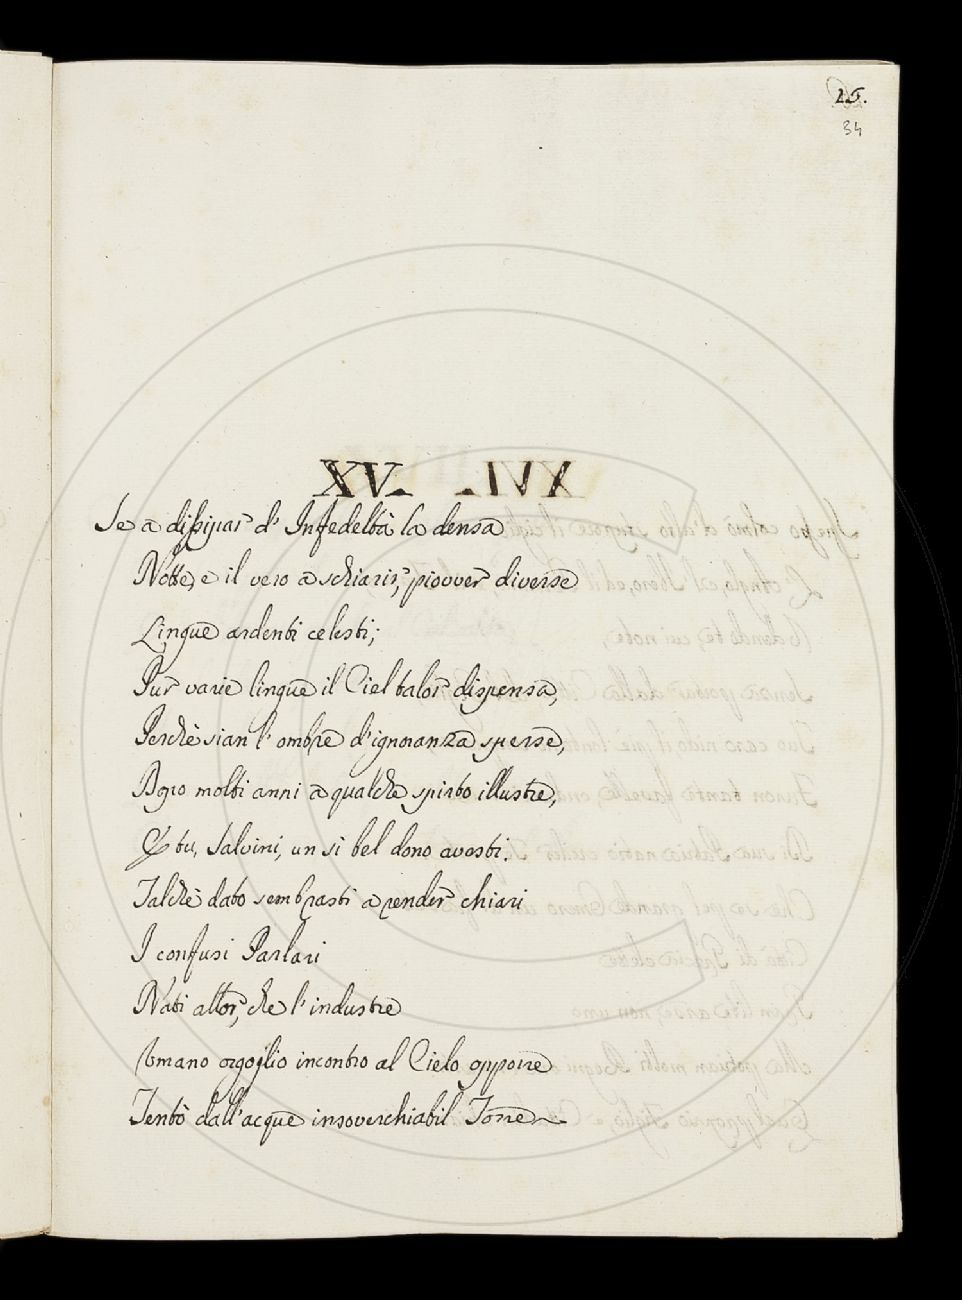 15.
34
XV.
Se a dissipar d' Infedeltà la densa
Notte, e il vero a schiarir, piovver diverse
Lingue ardenti celesti;
Pur varie lingue il Ciel talor dispensa,
Perchè sian l' ombre d'ignoranza sperse,
Dopo molti anni a qualche spirto illustre,
E tu, Salvini, un sì bel dono avesti.
Talchè dato sembrasti a render chiari
I confusi Parlari
Nati allor, che l' industre
Umano orgoglio incontro al Cielo opporre
Tentò dall'acque insoverchiabil Torre